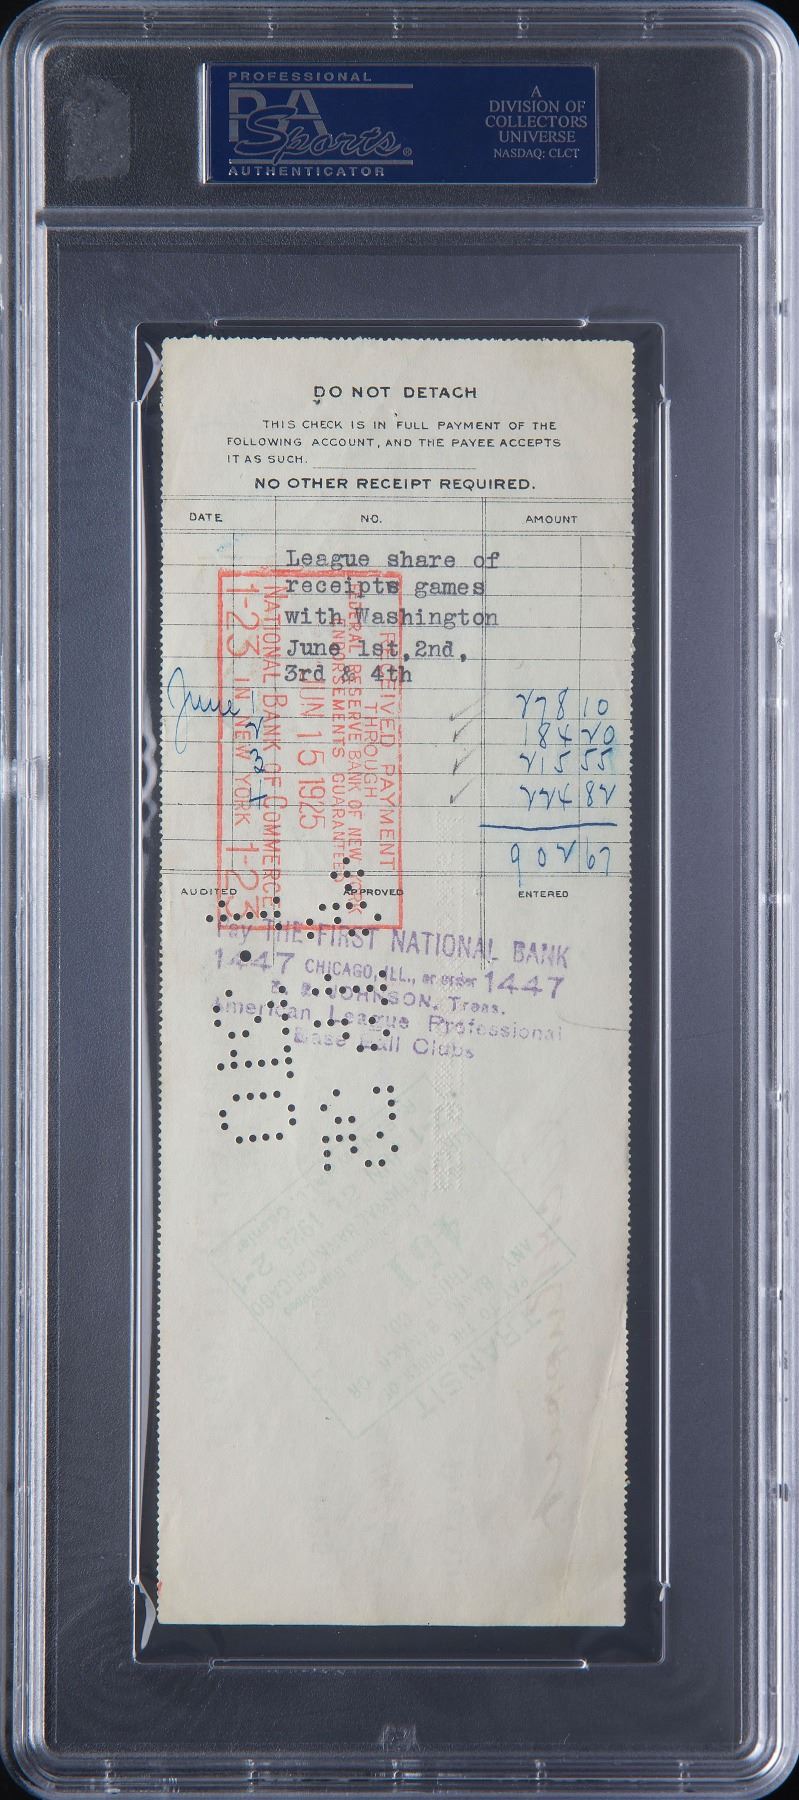 PROFESSIONAL
PSA
Sports®
AUTHENTICATOR
A
DIVISION OF
COLLECTORS
UNIVERSE
NASDAQ: CLCT
DO NOT DETACH
THIS CHECK IS IN FULL PAYMENT OF THE
FOLLOWING ACCOUNT, AND THE PAYEE ACCEPTS
IT AS SUCH.
NO OTHER RECEIPT REQUIRED.
DATE NO. AMOUNT
League share of
receipts games
with Washington
June 1st,2nd,
3rd & 4th
June 1 278 10
2 184 20
3 215 55
4 224 82
902 67
RECEIVED PAYMENT
THROUGH
FEDERAL RESERVE BANK OF NEW YORK
ENDORSEMENTS GUARANTEED
JUN 15 1925
NATIONAL BANK OF COMMERCE
1-23 IN NEW YORK 1-23
AUDITED APPROVED ENTERED
Pay THE FIRST NATIONAL BANK
1447 CHICAGO, ILL., or order 1447
JOHNSON, Treas.
American League Professional
Base Ball Clubs
PAY TO THE ORDER OF
ANY BANK, BANKER OR
TRUST CO.
TRANSIT
CHICAGO 2-1